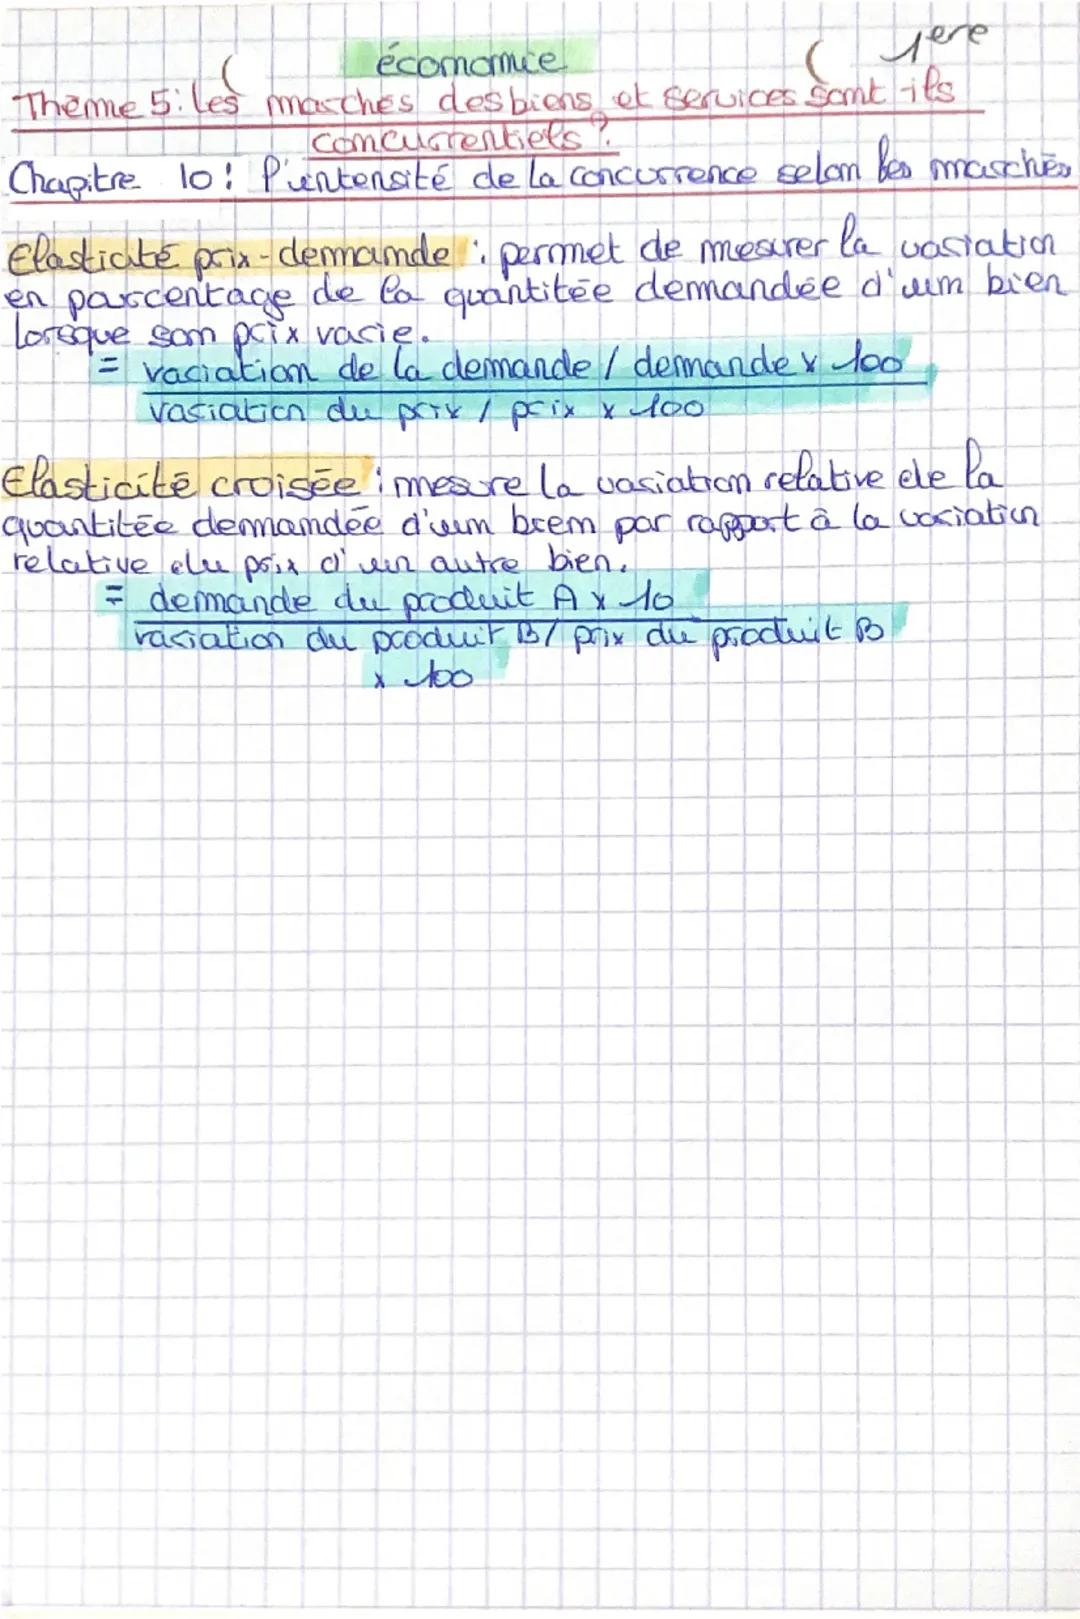 1ere
économie
Thème 5: les marchés des biens et services sont-ils
concurrentiels ?
Chapitre 10: l'intensité de la concurrence selon les marchés
Elasticité prix-demande : permet de mesurer la variation
en pourcentage de la quantitée demandée d'un bien
lorsque son prix varie.
= variation de la demande / demande x 100
variation du prix / prix x 100
Elasticité croisée : mesure la variation relative de la
quantitée demandée d'un bien par rapport à la variation
relative du prix d'un autre bien.
= demande du produit A x 10
variation du produit B / prix du produit B
x 100